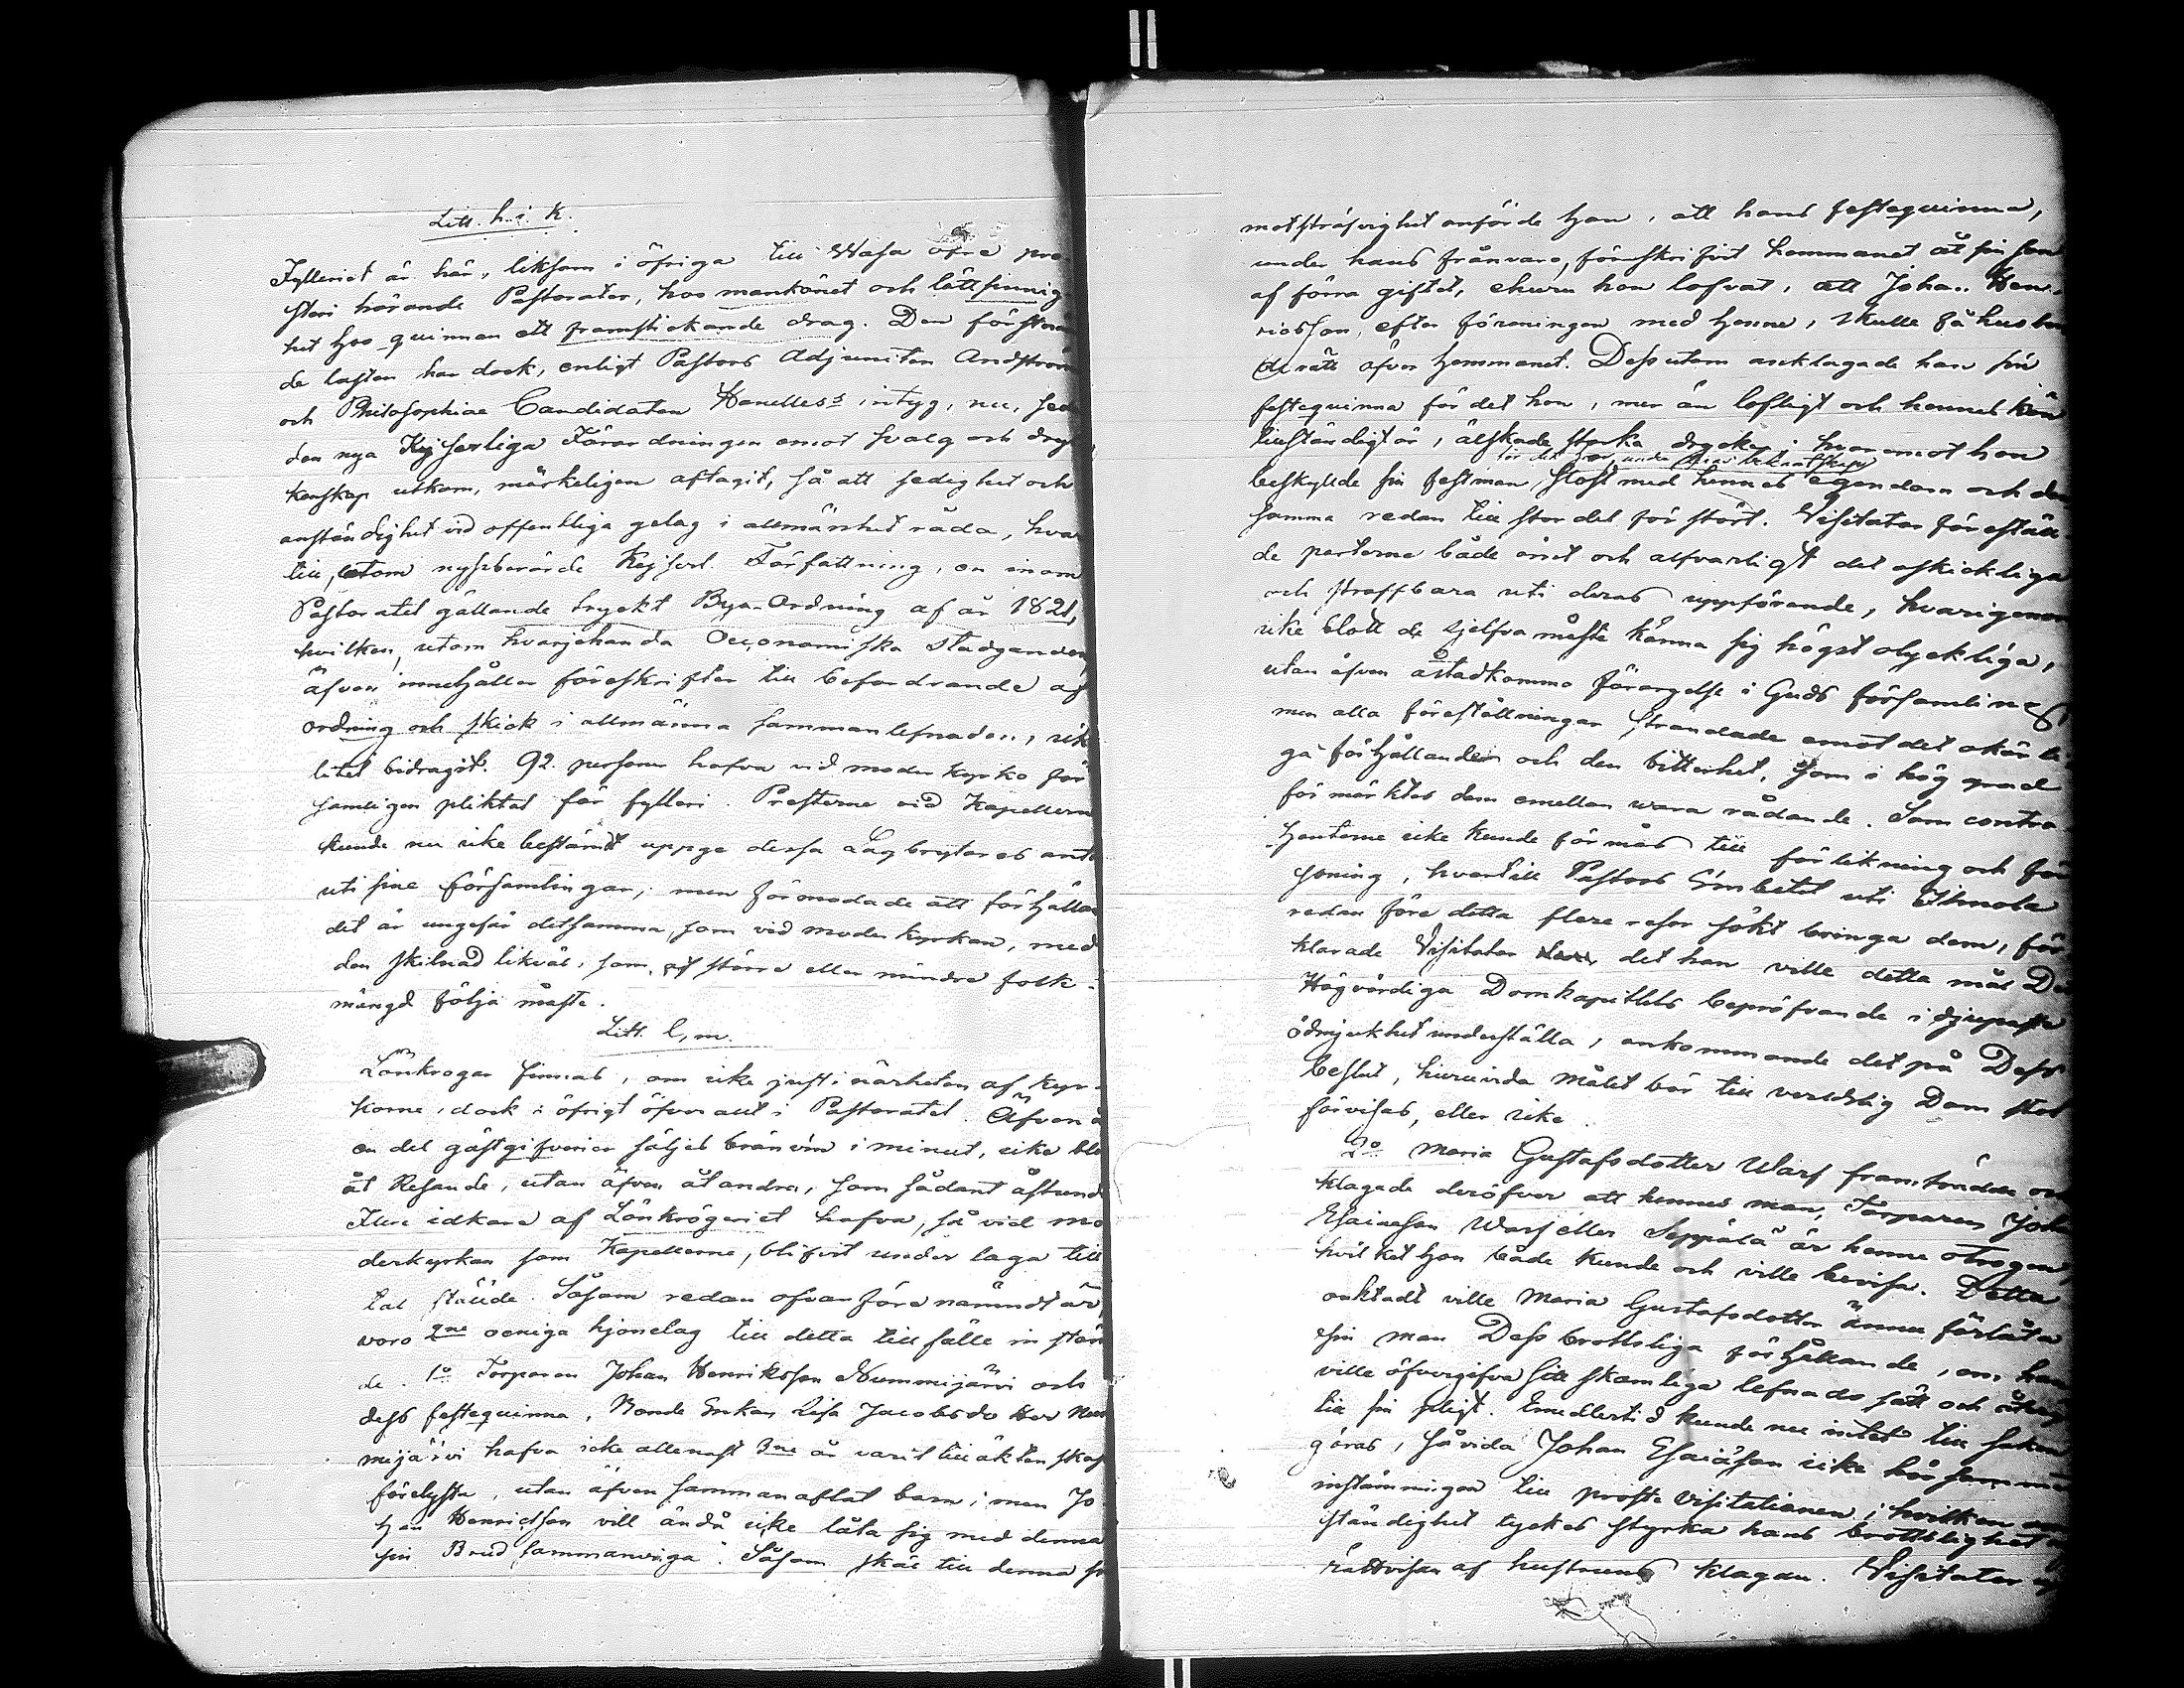 Litt. h. i. k.
Fylleriet är här, liksom i öfriga till Wasa öfre pro-
steri hörande Pastorater, hos mankönet och lättsinnig-
het hos quinnan ett framstickande drag. Den förstnäm
de lasten har dock, enligt Pastors Adjuncten Andström
och Philosophiae Candidaten Hanelless intyg, nu, sed
den nya Kejserliga Förordningen emot svalg och dryc
kenskap utkom, märkeligen aftagit, så att sedighet och
anständighet vid offentliga gelag i allmänhet råda, hvar
till, utom nyssberörde Kejserl. Författning, en inom
Pastoratet gällande tryckt Bya-Ordning af år 1821,
hvilken, utom hvarjehanda Oeconomiska stadganden
äfven innehåller föreskrifter till befordrande af
ordning och skick i allmänna sammanlefnaden, icke
litet bidragit. 92. personer hafva vid moder kyrko för
samligen pliktat för fylleri. Presterne vid Kapellerna
kunde nu icke bestämdt uppge dessa Lagbrytares antal
uti sine församlingar, men förmodade att förhållan
det är ungefär detsamma, som vid moder kyrkan, med
den skilnad likväl, som af större eller mindre folk-
mängd följa måste.
Litt. l, m.
Lönkrogar finnas, om icke just i närheten af kyr-
korne, dock i öfrigt öfver allt i Pastoratet. Äfven å
en del gästgifverier säljes bränvin i minut, icke blo
åt Resande, utan äfven åt andra, som sådant åstund
Flere idkare af Lönkrögeriet hafva, så vid mo
derkyrkan som Kapellerne, blifvit under laga till
tal stälde. Såsom redan ofvanföre nämndt är
voro 2ne oeniga hjonelag till detta tillfälle instäm
de. 1o Torparen Johan Henriksson Nummijärvi och
dess festequinna, Bonde Enkan Lisa Jacobsdotter Num
mijärvi hafva icke allenast 3ne år varit till äktenskap
förelyste, utan äfven sammanaflat barn, men Jo
han Henricsson vill ändå icke låta sig med denna
sin Brud sammanviga. Såsom skäl till denna sin
motsträfvighet anförde han, att hans festequinna,
under hans frånvaro, förskrifvit hemmanet åt sin son
af förra giftet, ehuru hon lofvat, att Johan Hen-
ricsson, efter föreningen med henne, skulle få husbon
deräte öfver hemmanet. Dessutom anklagade han sin
festequinna för det hon, mer än lofligt och hennes kön
anständigt är, älskade starka drycker; hvaremot hon
för det han, under deras bekantskap
beskyllde sin festman, slöst med hennes egendom och den
samma redan till stor del förstört. Visitator förestäld-
de parterne både ömt och alfvarligt det oskickliga
och straffbara uti deras uppförande, hvarigenom
icke blott de sjelfva måste känna sig högst olyckliga,
utan äfven åstadkomma förargelse i Guds församling;
men alla föreställningar strandade emot det okärli-
ga förhållandet och den bitterhet, som i hög grad
förmärktes dem emellan wara rådande. Som contra-
henterne icke kunde förmås till förlikning och för
soning, hvartill Pastors Embetet uti Ilmola
redan före detta flere resor sökt bringa dem, för
klarade Visitator det han ville detta mål Det
Högvördiga Domkapitlets bepröfvande i djupaste
ödmjukhet underställa, ankommande det på Dess
beslut, huruvida målet bör till verldslig Dom stol
förvisas, eller icke.
2o Maria Gustafsdotter Warf framträdde och
klagade deröfver att hennes man, Torparen Johan
Esaiaeson Warf eller Seppälä är henne otrogen,
hvilket hon både kunde och ville bevisa. Detta
oaktadt ville Maria Gustafsdotter ännu förlåta
sin man Dess brottsliga förhållande, om han
ville öfvergifva sitt skamliga lefnads sätt och återgå
till sin pligt. Emedlertid kunde nu intet till saken
göras, såvida Johan Esaiäson icke hörsammat
instämningen till prosteVisitationen, hvilken om
ständighet tyckes styrka hans brottslighet och
rättvisan af hustruns klagan. Visitator